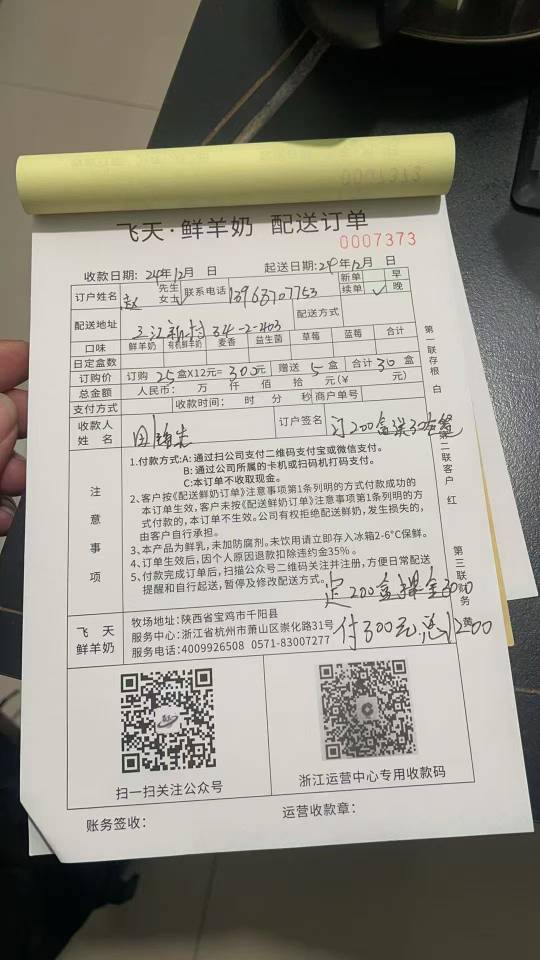 0007373
飞天·鲜羊奶 配送订单
0007373
收款日期: 24年12月 日 起送日期: 24年12月 日
订户姓名 赵 先生 女士 联系电话 13963707753 新单 早
续单 ✓ 晚
配送地址 三江新村 34-2-403 配送方式
口味 鲜羊奶 有机鲜羊奶 麦香 益生菌 草莓 蓝莓 合计
日定盒数
订购价 订购 25 盒X12元= 300元 赠送 5 盒 合计 30 盒
总金额 人民币: 万 仟 佰 拾 元(￥ 元)
支付方式 收款时间: 时 分 秒 商户单号
收款人姓名 订户签名 订200盒送30
注意事项
1.付款方式:A: 通过扫公司支付二维码支付宝或微信支付。
B: 通过公司所属的卡机或扫码机打码支付。
C:本订单不收取现金。
2、客户按《配送鲜奶订单》注意事项第1条列明的方式付款成功的
本订单生效，客户未按《配送鲜奶订单》注意事项第1条列明的方
式付款的，本订单不生效。公司有权拒绝配送鲜奶，发生损失的，
由客户自行承担。
3、本产品为鲜乳，未加防腐剂。未饮用请立即存入冰箱2-6°C保鲜。
4、订单生效后，因个人原因退款扣除违约金35%。
5、付款完成订单后，扫描公众号二维码关注并注册，方便日常配送
提醒和自行起送，暂停及修改配送方式。
定200盒
付300元
飞天鲜羊奶
牧场地址:陕西省宝鸡市千阳县
服务中心:浙江省杭州市萧山区崇化路31号
服务电话:4009926508 0571-83007277
扫一扫关注公众号
浙江运营中心专用收款码
账务签收: 运营收款章:
第一联存根 白
第二联客户 红
第三联财务 黄